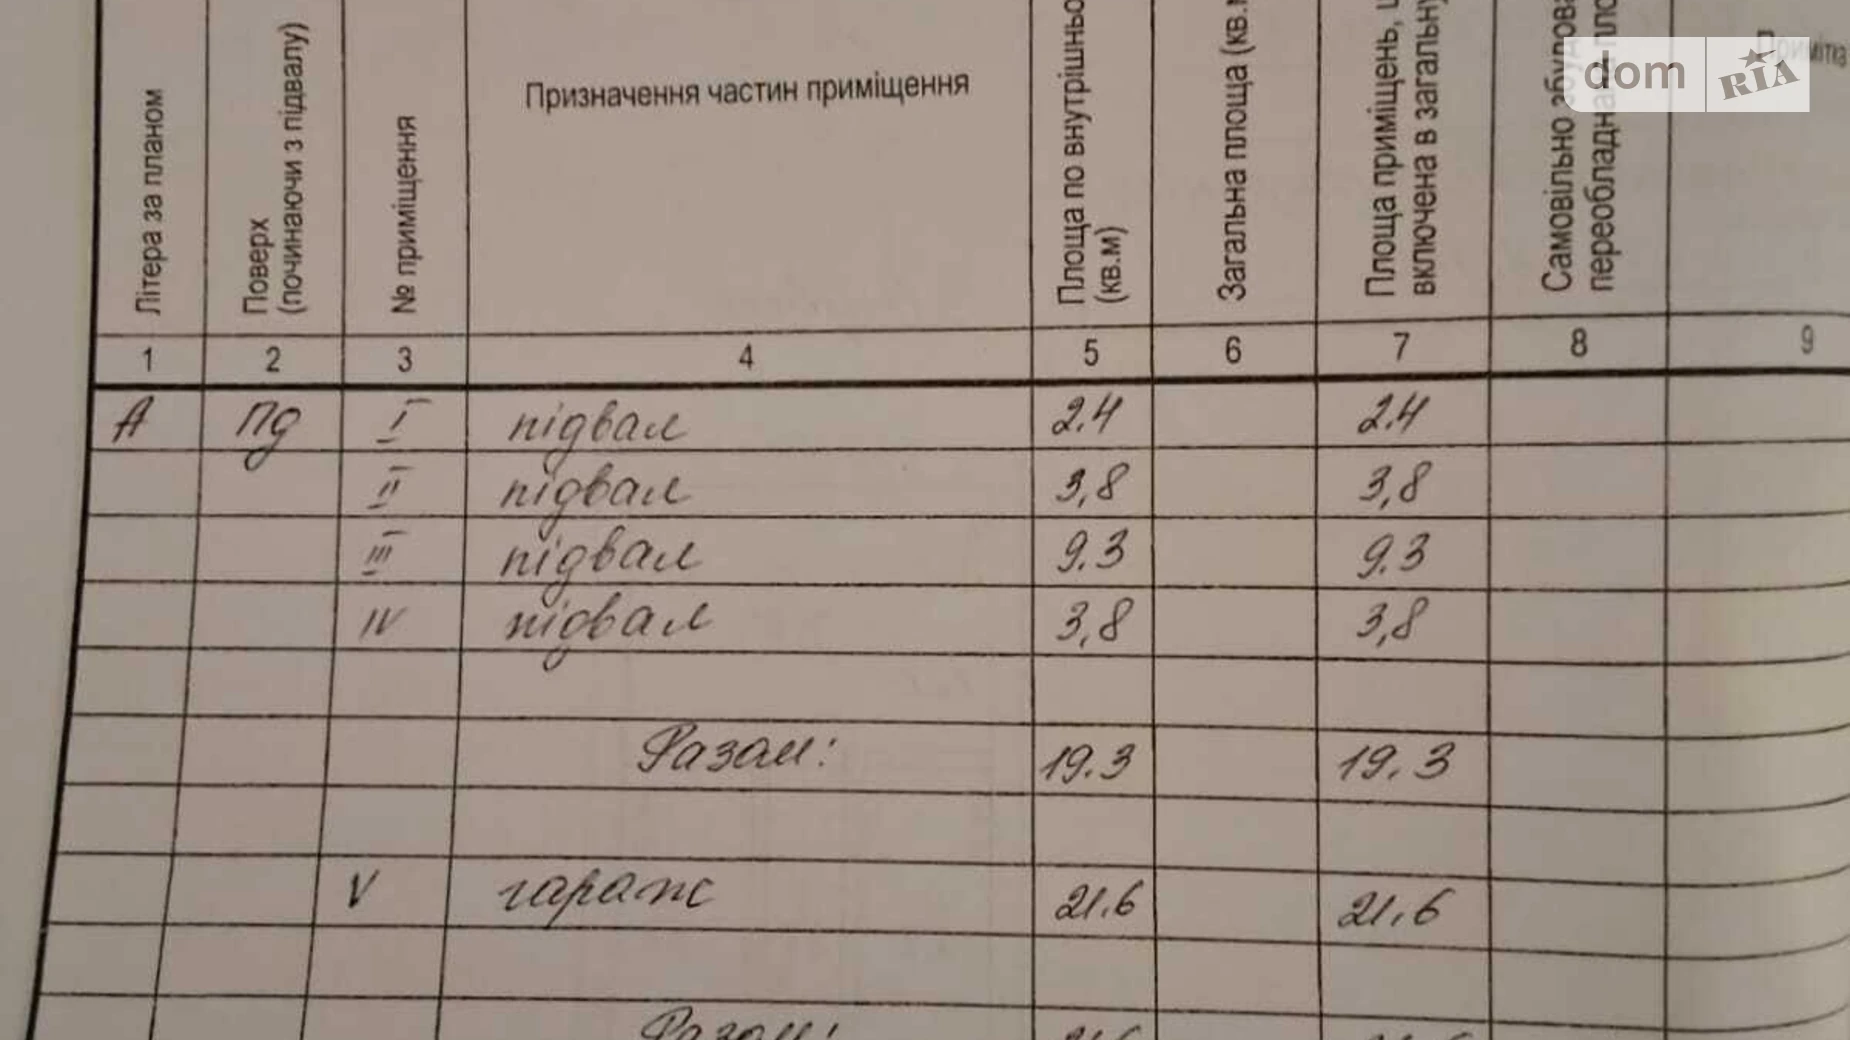 Літера за планом
Поверх
(починаючи з підвалу)
№ приміщення
Призначення частин приміщення
Площа по внутрішньо
(кв.м)
Загальна площа (кв.м
Площа приміщень,
включена в загальну
Самовільно збудова
dom RIA
1 2 3 4 5 6 7 8 9
А Пд I підвал 2.4 2.4
II підвал 3,8 3,8
III підвал 9.3 9.3
IV підвал 3,8 3,8
Разом: 19.3 19.3
V гараж 21.6 21.6
Разом: